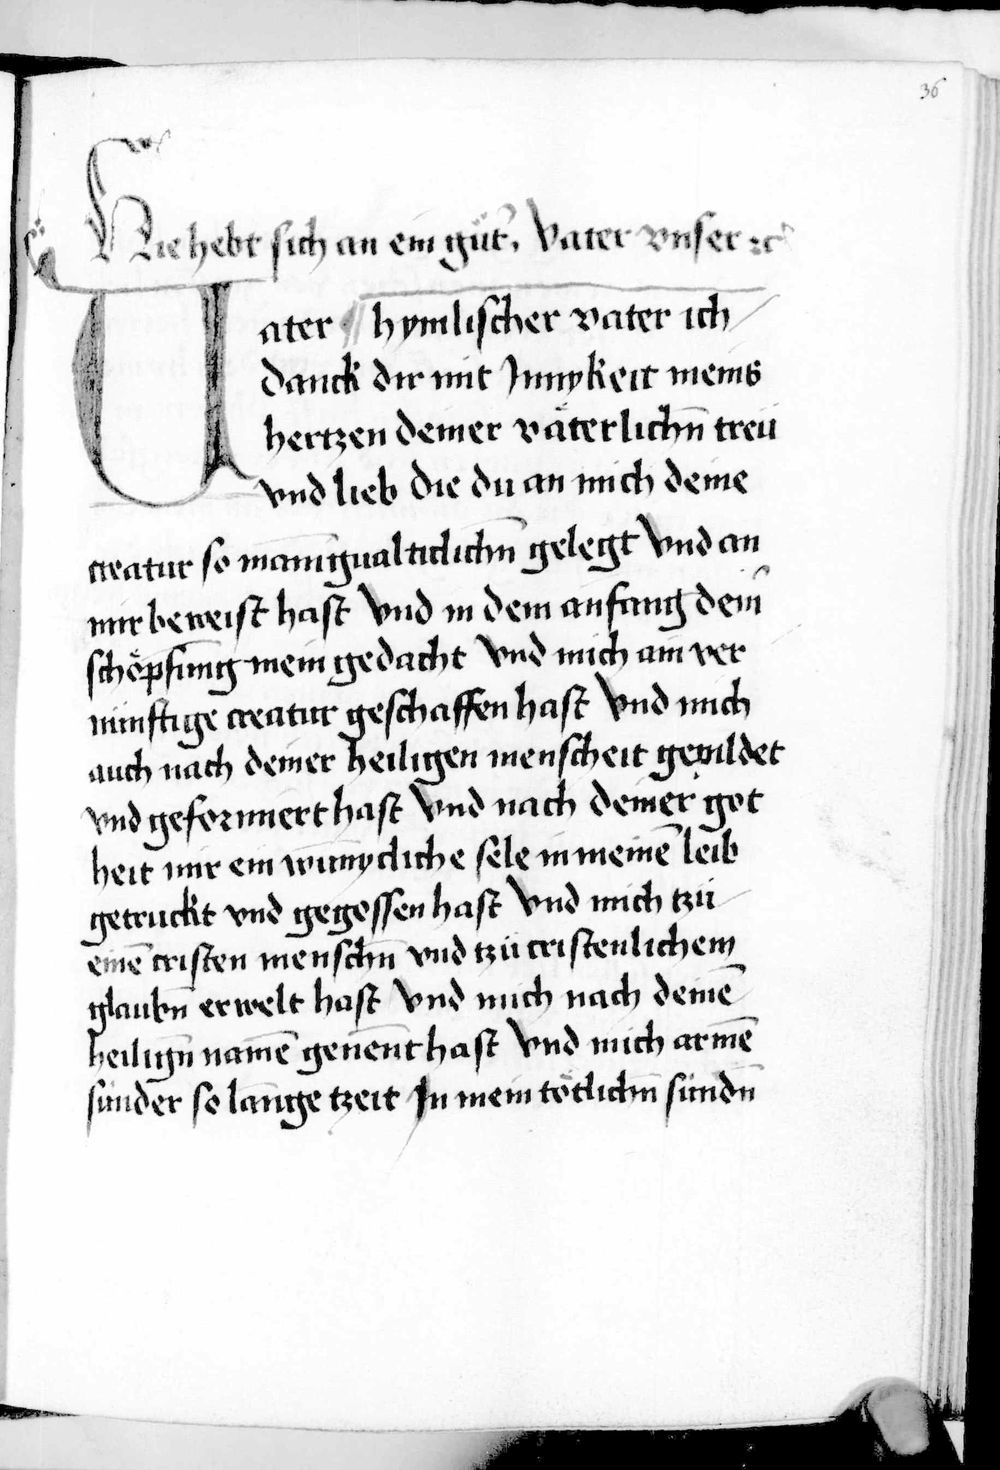 36
Hie hebt sich an ein gůt, Vater vnser ⁊c̃
Vater hymlischer vater ich
danck dir mit Jnnykeit meins
hertzen deiner väterlichñ treü
vnd lieb die du an mich deine
creatur so manigualticlichñ gelegt Vnd an
mir beweist hast Vnd in dem anfang dein̄
schöpfung mein gedacht Vnd mich ain ver
nünftige creatur geschaffen hast Vnd mich
auch nach deiner heiligen menscheit gepildet
vnd geformiert hast Vnd nach deiner got
heit mir ein wunnyckliche sele in meinē leib
getruckt vnd gegossen hast Vnd mich tzü
einē cristen menschñ vnd tzü cristenlichem
glaubñ erwelt hast Vnd mich nach deinē
heiligñ namē genēnt hast Vnd mich armē
sünder so lānge tzeit Jn mein tötlichñ sündñ